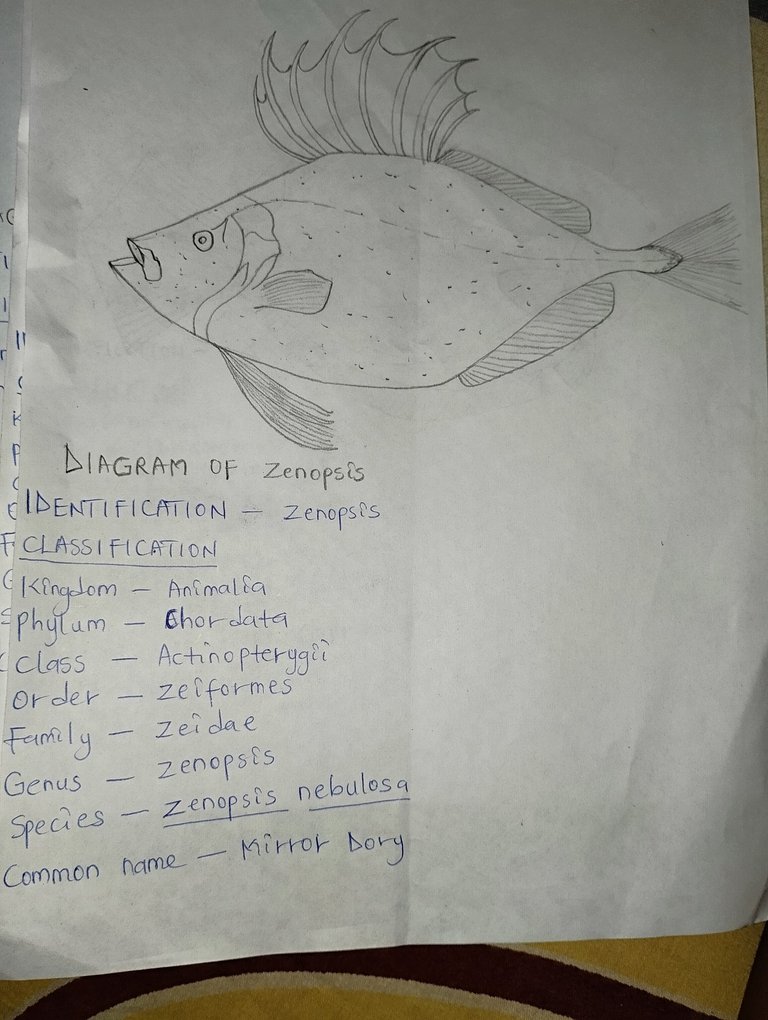 DIAGRAM OF Zenopsis
IDENTIFICATION — Zenopsis
CLASSIFICATION
Kingdom — Animalia
Phylum — Chordata
Class — Actinopterygii
Order — Zeiformes
Family — Zeidae
Genus — Zenopsis
Species — Zenopsis nebulosa
Common name — Mirror Dory